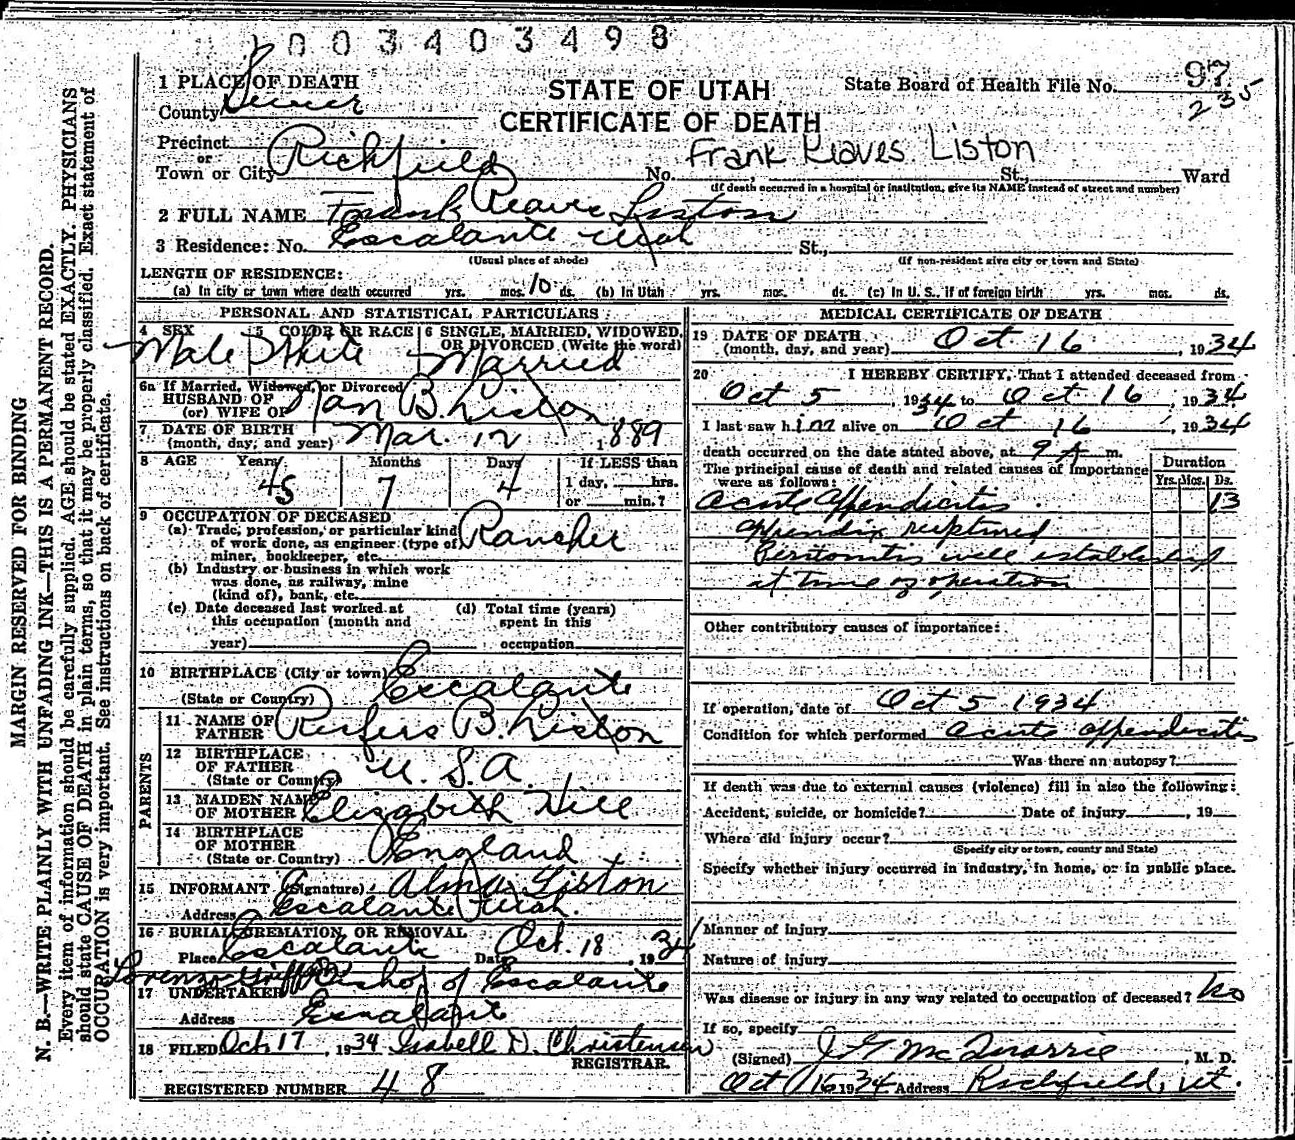 1003403498
MARGIN RESERVED FOR BINDING
N. B.—WRITE PLAINLY WITH UNFADING INK—THIS IS A PERMANENT RECORD.
Every item of information should be carefully supplied. AGE should be stated EXACTLY. PHYSICIANS
should state CAUSE OF DEATH in plain terms, so that it may be properly classified. Exact statement of
OCCUPATION is very important. See instructions on back of certificate.
STATE OF UTAH
CERTIFICATE OF DEATH
State Board of Health File No. 97
235
1 PLACE OF DEATH
County Sevier
Precinct
or
Town or City Richfield No. , St., Ward
Frank Reaves Liston
(If death occurred in a hospital or institution, give its NAME instead of street and number)
2 FULL NAME Frank Reaves Liston
3 Residence: No. Escalante Utah St.,
(Usual place of abode) (If non-resident give city or town and State)
LENGTH OF RESIDENCE:
(a) In city or town where death occurred yrs. mos. 10 ds. (b) In Utah yrs. mos. ds. (c) In U. S., if of foreign birth yrs. mos. ds.
PERSONAL AND STATISTICAL PARTICULARS
4 SEX 5 COLOR OR RACE 6 SINGLE, MARRIED, WIDOWED, OR DIVORCED (Write the word)
Male White Married
6a If Married, Widowed, or Divorced
HUSBAND OF
(or) WIFE OF Nan B. Liston
7 DATE OF BIRTH
(month, day, and year) Mar. 12 1889
8 AGE Years Months Days If LESS than
45 7 4 1 day, hrs.
or min.?
9 OCCUPATION OF DECEASED
(a) Trade, profession, or particular kind
of work done, as engineer (type of Rancher
miner, bookkeeper, etc.
(b) Industry or business in which work
was done, as railway, mine
(kind of), bank, etc.
(c) Date deceased last worked at (d) Total time (years)
this occupation (month and spent in this
year) occupation
10 BIRTHPLACE (City or town) Escalante
(State or Country)
PARENTS
11 NAME OF
FATHER Rufus B. Liston
12 BIRTHPLACE
OF FATHER U. S. A.
(State or Country)
13 MAIDEN NAME
OF MOTHER Elizabeth Hill
14 BIRTHPLACE
OF MOTHER England
(State or Country)
15 INFORMANT (Signature) Alma Liston
Address Escalante Utah.
16 BURIAL, CREMATION, OR REMOVAL
Place Escalante Date Oct. 18, 1934
Lorenzo Griffin Bishop of Escalante
17 UNDERTAKER
Address Escalante
18 FILED Oct 17, 1934 Isabell D. Christensen
REGISTRAR.
REGISTERED NUMBER 48
MEDICAL CERTIFICATE OF DEATH
19 DATE OF DEATH
(month, day, and year) Oct. 16, 1934
20 I HEREBY CERTIFY, That I attended deceased from
Oct 5, 1934 to Oct 16, 1934
I last saw him alive on Oct 16, 1934
death occurred on the date stated above, at 9 A m.
The principal cause of death and related causes of importance
were as follows:
Duration
Yrs. Mos. Ds.
Acute Appendicitis 13
Appendix ruptured
Peritonitis well established
at time of operation
Other contributory causes of importance:
If operation, date of Oct 5 1934
Condition for which performed Acute appendicitis
Was there an autopsy?
If death was due to external causes (violence) fill in also the following:
Accident, suicide, or homicide? Date of injury , 19
Where did injury occur?
(Specify city or town, county and State)
Specify whether injury occurred in industry, in home, or in public place.
Manner of injury
Nature of injury
Was disease or injury in any way related to occupation of deceased? No
If so, specify
(Signed) J G McQuarrie, M. D.
Oct 16 1934 Address Richfield, Ut.